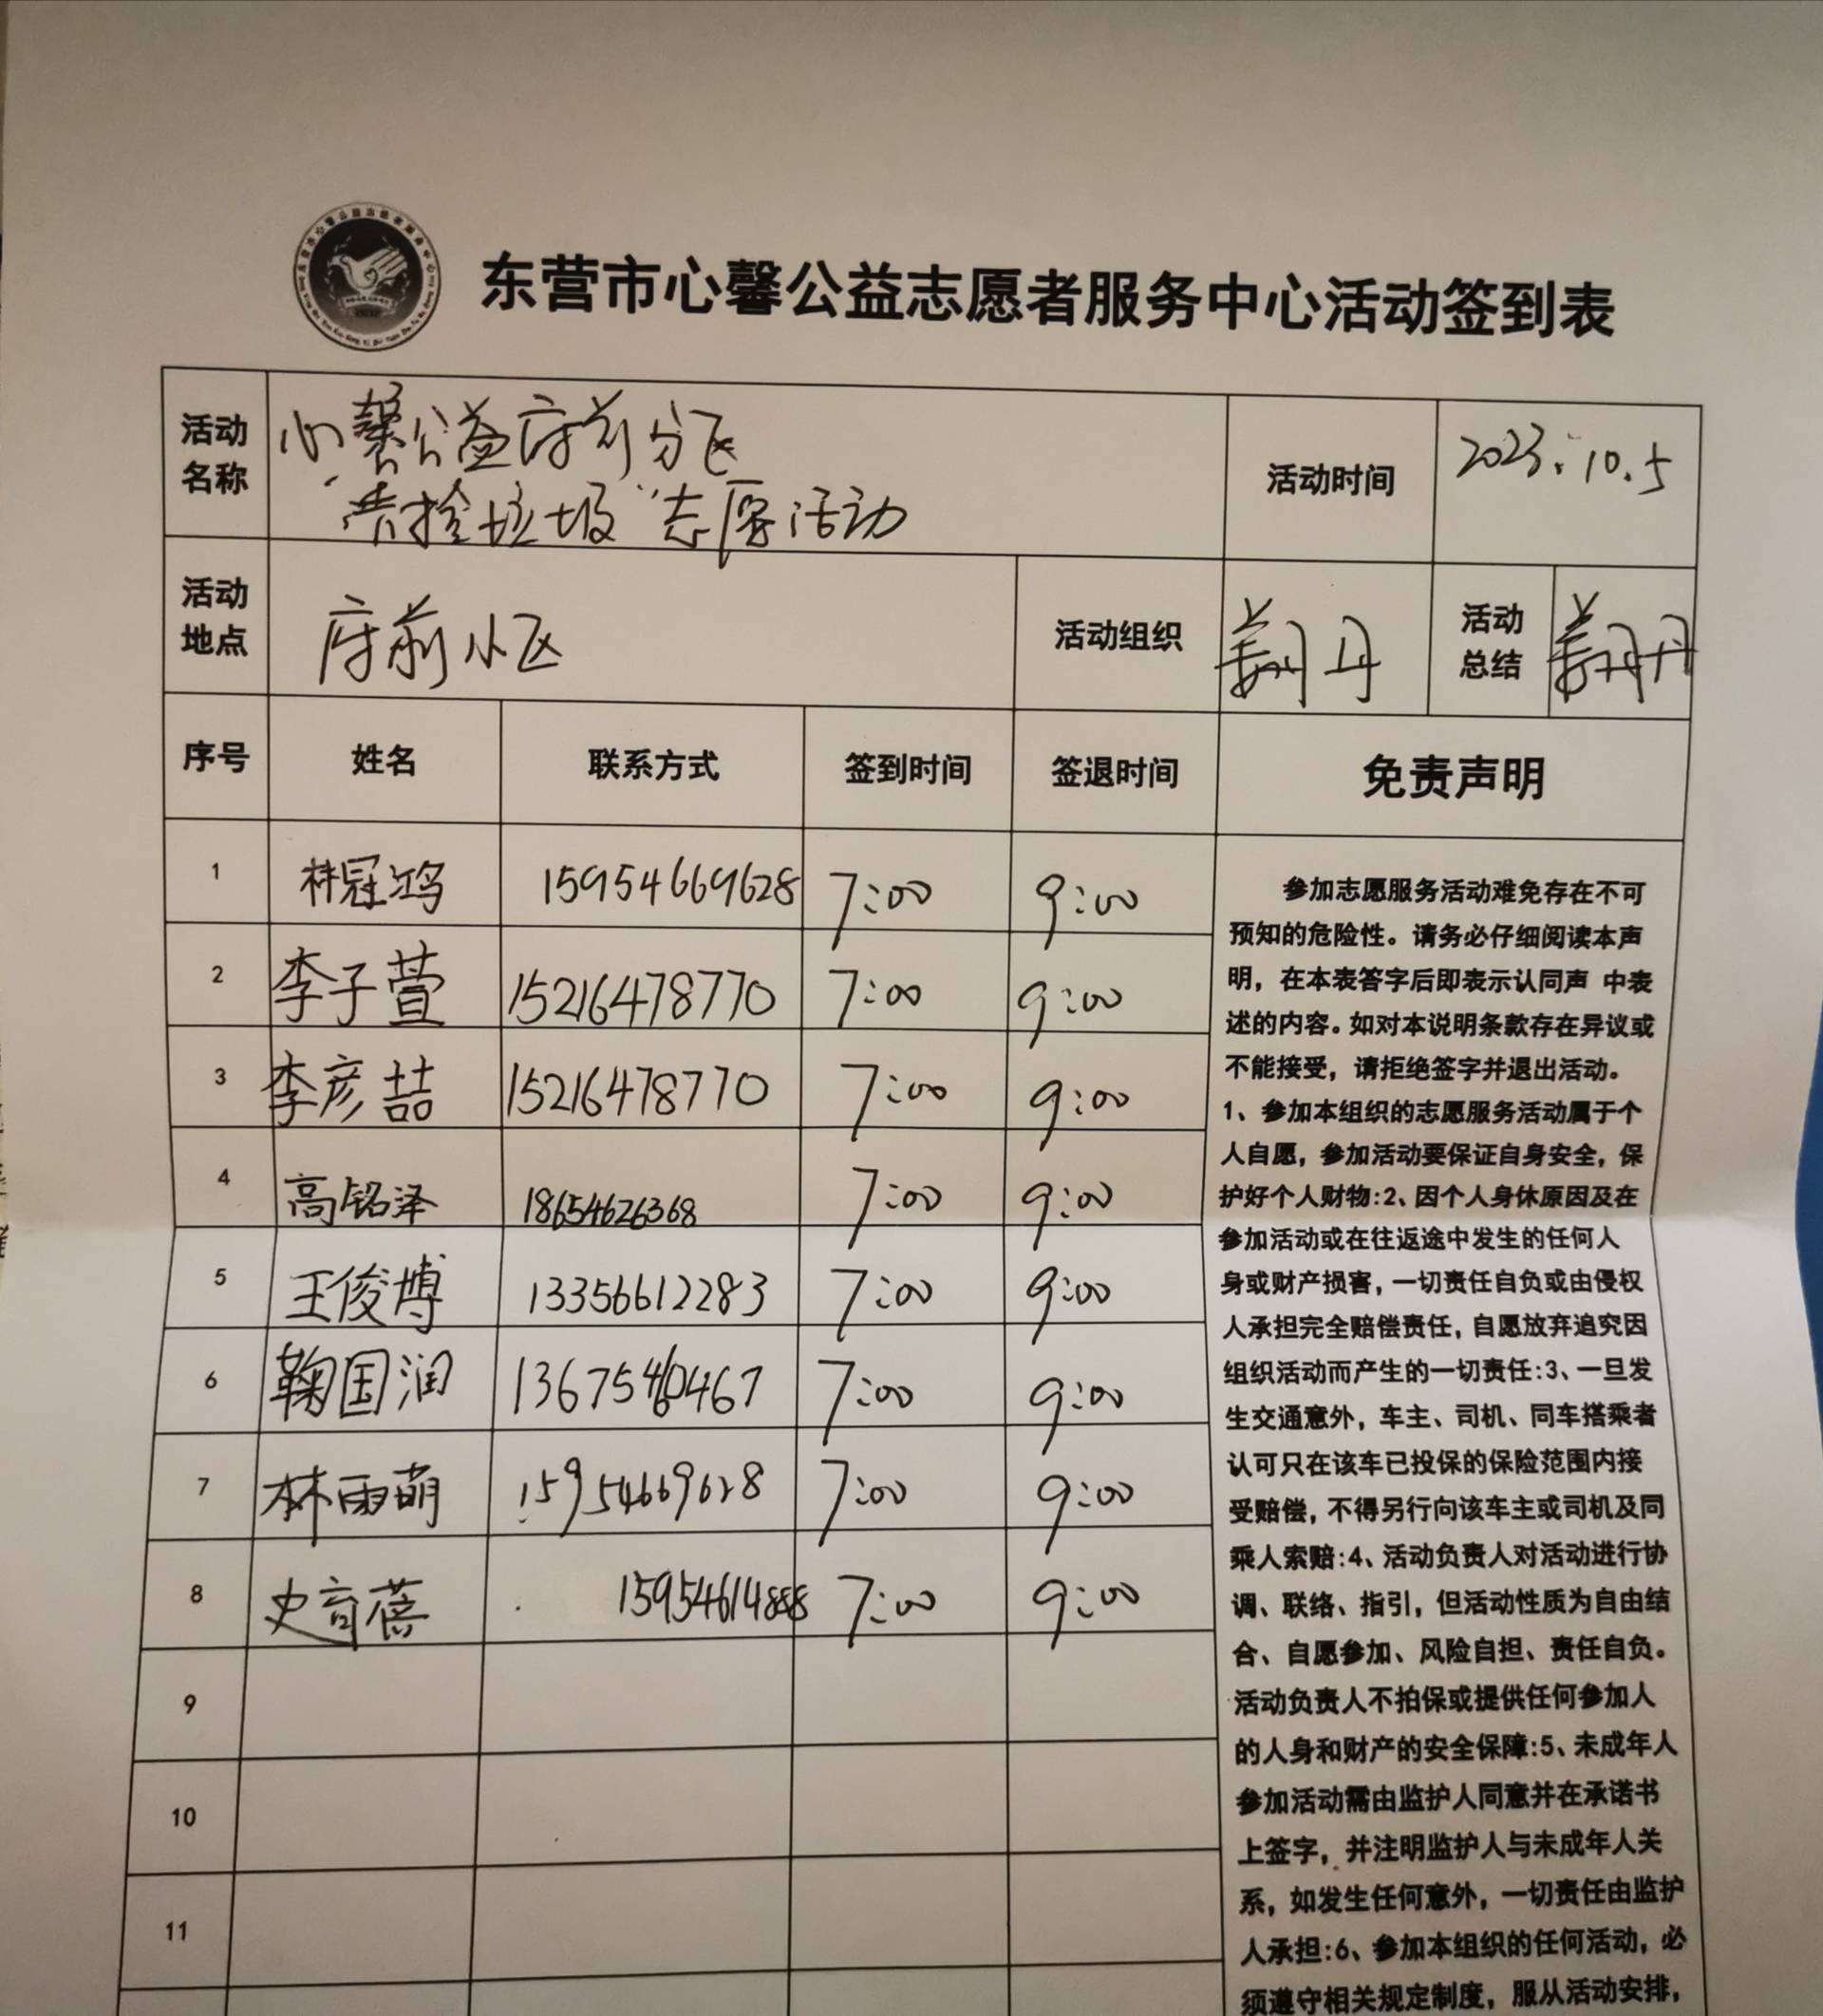 东营市心馨公益志愿者服务中心活动签到表
活动名称 心馨公益府前分区 "捡拾垃圾"志愿活动 活动时间 2023.10.5
活动地点 府前小区 活动组织 姜丹丹 活动总结 姜丹丹
序号 姓名 联系方式 签到时间 签退时间 免责声明
1 林冠鸿 15954669628 7:00 9:00
2 李子萱 15216478770 7:00 9:00
3 李彦喆 15216478770 7:00 9:00
4 高铭泽 18654626368 7:00 9:00
5 王俊博 13356612283 7:00 9:00
6 鞠国润 13675460467 7:00 9:00
7 林雨萌 15954669628 7:00 9:00
8 史育蓓 15954614888 7:00 9:00
9
10
11
参加志愿服务活动难免存在不可
预知的危险性。请务必仔细阅读本声
明，在本表答字后即表示认同声 中表
述的内容。如对本说明条款存在异议或
不能接受，请拒绝签字并退出活动。
1、参加本组织的志愿服务活动属于个
人自愿，参加活动要保证自身安全，保
护好个人财物:2、因个人身休原因及在
参加活动或在往返途中发生的任何人
身或财产损害，一切责任自负或由侵权
人承担完全赔偿责任，自愿放弃追究因
组织活动而产生的一切责任:3、一旦发
生交通意外，车主、司机、同车搭乘者
认可只在该车已投保的保险范围内接
受赔偿，不得另行向该车主或司机及同
乘人索赔:4、活动负责人对活动进行协
调、联络、指引，但活动性质为自由结
合、自愿参加、风险自担、责任自负。
活动负责人不拍保或提供任何参加人
的人身和财产的安全保障:5、未成年人
参加活动需由监护人同意并在承诺书
上签字，并注明监护人与未成年人关
系，如发生任何意外，一切责任由监护
人承担:6、参加本组织的任何活动，必
须遵守相关规定制度，服从活动安排，